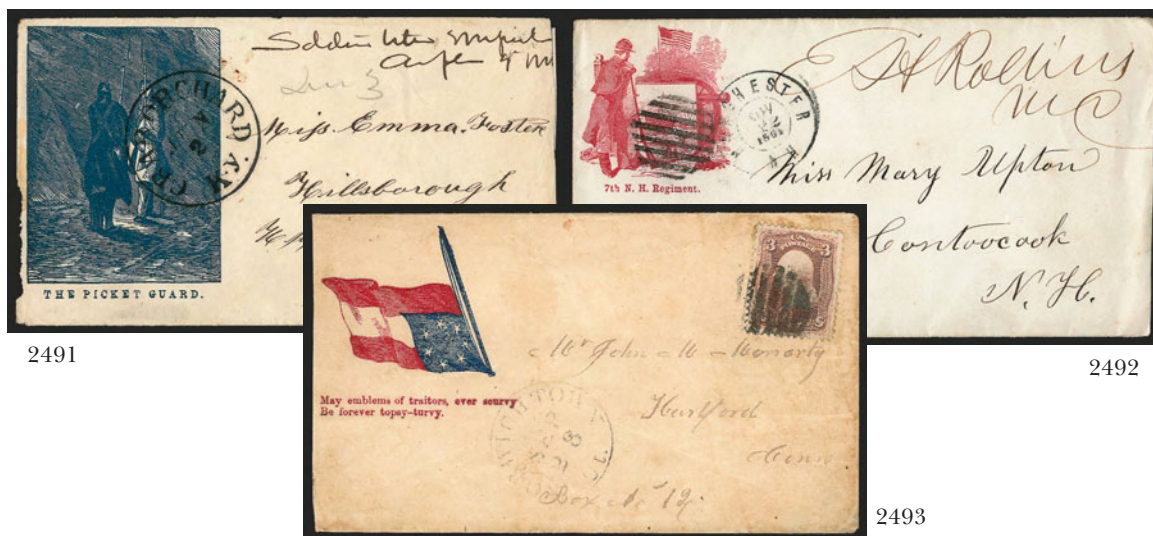 Soldier
CRAB ORCHARD KY.
24
Miss. Emma. Foster
Hillsborough
THE PICKET GUARD.
2491
E H Rollins
M C
CHESTER
NOV
22
7th N. H. Regiment.
Miss Mary Upton
Contoocook
N. H.
2492
3 3
U.S.
POSTAGE
May emblems of traitors, ever scurvy
Be forever topsy-turvy.
Mr John M Moriarty
Hartford
Conn
Box No 12
2493